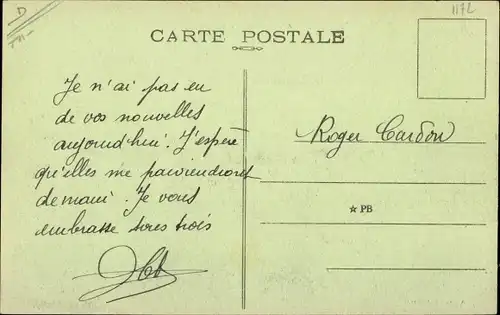 D
1172
CARTE POSTALE
Je n'ai pas eu
de vos nouvelles
aujourd'hui. J'espère
qu'elles me parviendront
demain. Je vous
embrasse tous trois
Roger Cardon
★ PB